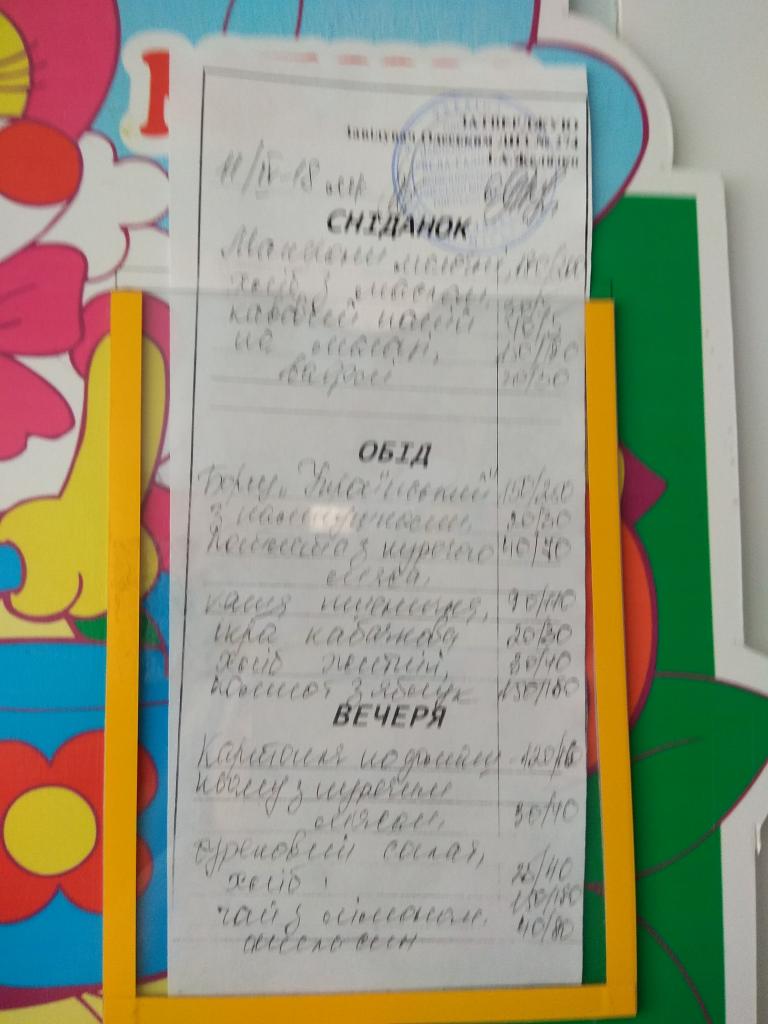 ЗАТВЕРДЖУЮ
11/IV-18
СНІДАНОК
Макарони молочні, 180/200
хліб з маслом,
кавовий напій
на молоці, 150/180
вафлі 20/30
ОБІД
Борщ „Український" 150/250
з пампушкою, 20/30
Котлета з курячого 40/70
м'яса,
каша пшенична, 90/110
ікра кабачкова 20/30
хліб житній, 30/40
компот з яблук 150/180
ВЕЧЕРЯ
Картопля по домаш 120/
ньому з курячим
м'ясом, 30/40
буряковий салат,
хліб, 25/40
150/180
чай з лимоном. 40/80